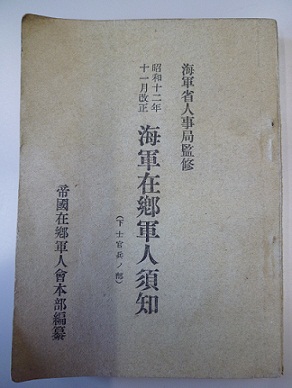 海軍省人事局監修
昭和十二年
十一月改正
海軍在鄕軍人須知
(下士官兵ノ部)
帝國在鄕軍人會本部編纂